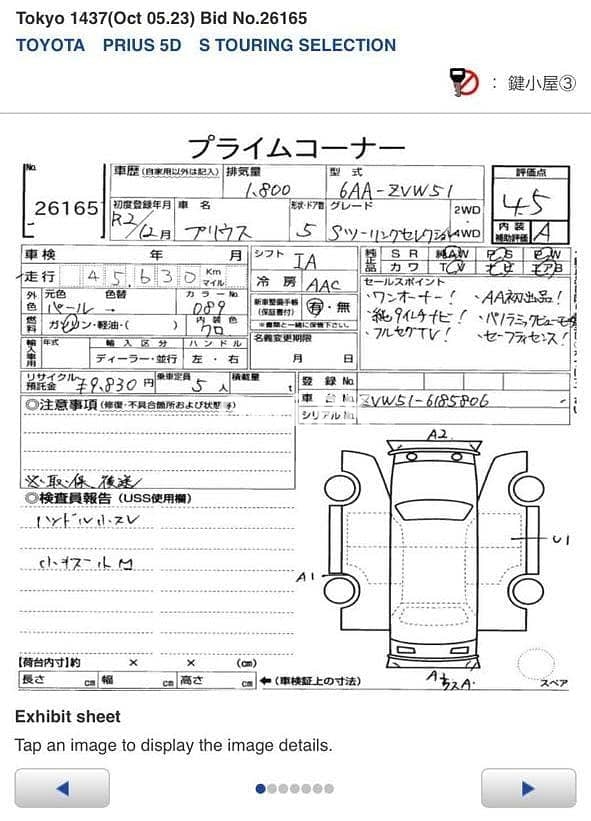 Tokyo 1437(Oct 05.23) Bid No.26165
TOYOTA PRIUS 5D S TOURING SELECTION
： 鍵小屋③
プライムコーナー
No.
26165
車歴 (自家用以外は記入)
排気量
1,800
型 式
6AA-ZVW51
評価点
4.5
初度登録年月
R2/12月
車 名
プリウス
形状・ドア数
5
グレード
Sツーリングセレクション
2WD
4WD
内装補助評価
A
車検 年 月
走行 45,630 Km マイル
シフト
IA
冷房
AAC
純正品
SR
純AW
PS
PW
カワ
TV
ナビ
エアB
外色
元色
パール
色替
→
カラーNo.
089
内装色
クロ
燃料
ガソリン・軽油・( )
新車整備手帳 (保証書付)
有・無
※書類と一緒に保管下さい。
セールスポイント
・ワンオーナー！
・AA初出品！
・フルセグTV！
・セーフティセンス！
輸入車用
年式
輸入区分
ディーラー・並行
ハンドル
左・右
名義変更期限
月 日
リサイクル預託金
¥9,830円
乗車定員
5人
積載量
t
登録No.
車台No.
ZVW51-6185806
シリアルNo.
◎注意事項 (修復・不具合箇所および状態等)
※取、保、後送
◎検査員報告 (USS使用欄)
ハンドル小スレ
A2
U1
A1
A
スペア
【荷台内寸】約 × × (cm)
長さ cm 幅 cm 高さ cm
←(車検証上の寸法)
Exhibit sheet
Tap an image to display the image details.